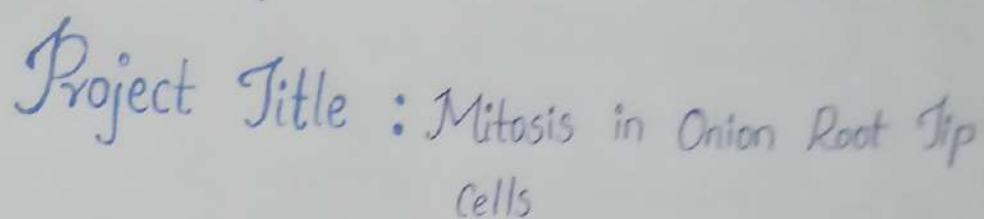 Project Title : Mitosis in Onion Root Tip
Cells